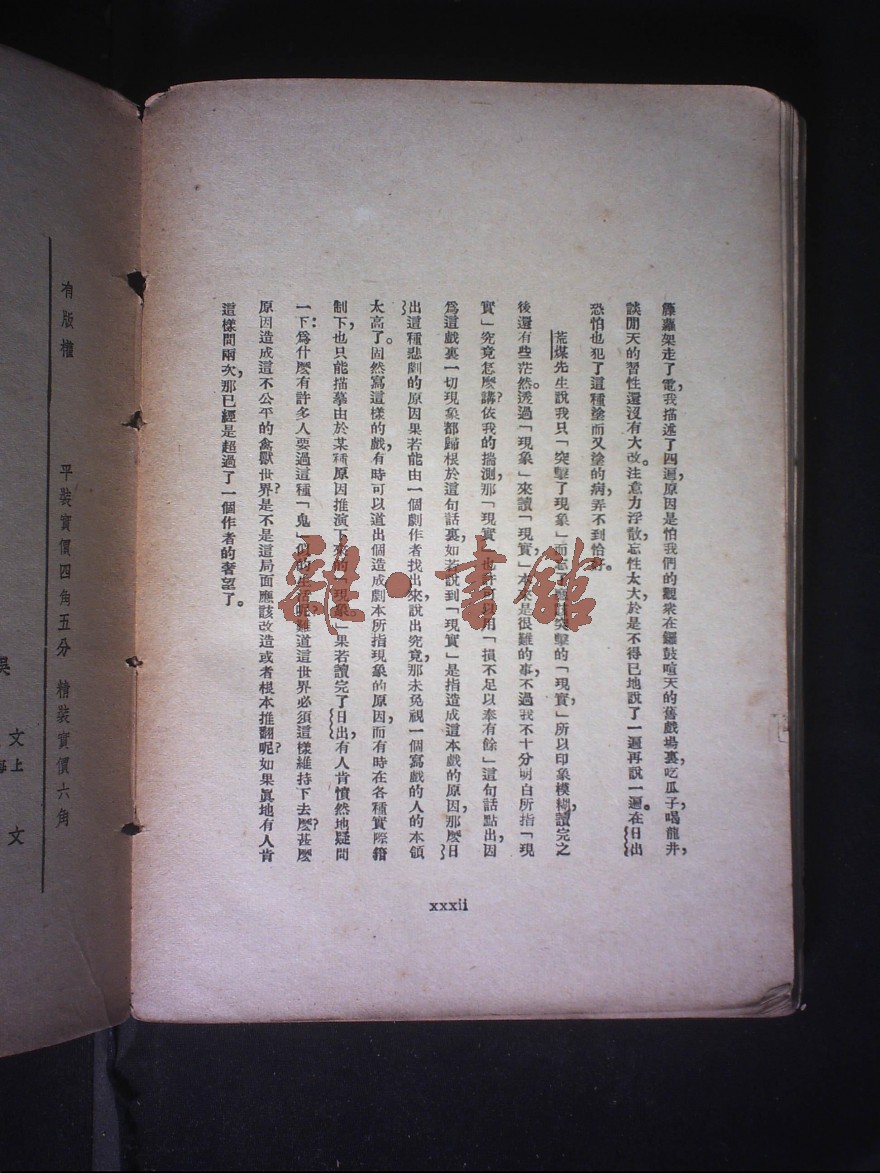 籐蘿架走了電,我描述了四遍,原因是怕我們的觀衆在鑼鼓喧天的舊戲場裏,吃瓜子,喝龍井,
談閒天的習性還沒有大改。注意力浮散,忘性太大,於是不得已地說了一遍再說一遍。在日出
恐怕也犯了這種塗而又塗的病,弄不到恰好。
荒煤先生說我只「突擊了現象」而忘了應該突擊的「現實,」所以印象模糊,讀完之
後還有些茫然。透過「現象」來讀「現實,」本來是很難的事,不過我不十分明白所指「現
實」究竟怎麼講?依我的揣測,那「現實」也許可以用「損不足以奉有餘」這句話點出,因
爲這戲裏一切現象都歸根於這句話裏,如若說到「現實」是指造成這本戲的原因,那麼日
出這種悲劇的原因果若能由一個劇作者找出來,說出究竟,那未免視一個寫戲的人的本領
太高了。固然寫這樣的戲,有時可以道出個造成劇本所指現象的原因,而有時在各種實際籍
制下,也只能描摹由於某種原因推演下來的「現象」。果若讀完了日出,有人肯憤然地疑問
一下:爲什麼有許多人要過這種「鬼」似的生活呢?難道這世界必須這樣維持下去麼?甚麼
原因造成這不公平的禽獸世界?是不是這局面應該改造或者根本推翻呢?如果眞地有人肯
這樣問兩次,那已經是超過了一個作者的奢望了。
xxxii
有版權
平裝實價四角五分 精裝實價六角
文
上
文
雜·書館